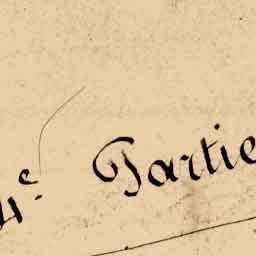 4e. Partie